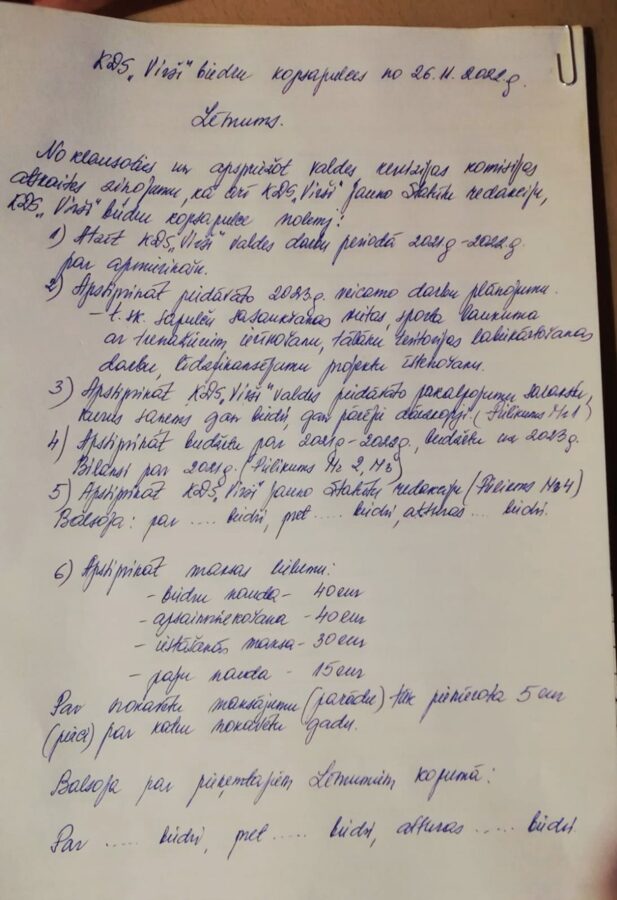 KDS „Virši" biedru kopsapulces no 26.11.2022g.
Lēmums.
Noklausoties un apspriežot valdes revīzijas komisijas
atskaites ziņojumu, kā arī KDS „Virši" Jauno Statūtu redakciju,
KDS „Virši" biedru kopsapulce nolemj:
1) Atzīt KDS „Virši" valdes darbu periodā 2021g-2022.g.
par apmierinošu.
2) Apstiprināt piedāvāto 2023.g. veicamo darbu plānojumu.
- t.sk. sapulču sasaukšanas vietas, sporta laukuma
ar trenažieriem ierīkošanu, tālāku teritorijas labiekārtošanas
darbu, līdzfinansējumu projektu īstenošanu.
3) Apstiprināt KDS „Virši" valdes piedāvāto pakalpojumu sarakstu,
kurus saņems gan biedri, gan pārējie (Pielikums Nr1)
4) Apstiprināt budžetu par 2021g-2022g, budžetu uz 2023g.
Bilansi par 2021g. (Pielikums Nr 2, Nr3)
5) Apstiprināt KDS „Virši" Jauno Statūtu redakciju (Pielikums Nr4)
Balsoja: par .... biedri, pret .... biedri, atturas .... biedri.
6) Apstiprināt maksas lielumu:
- biedru nauda - 40 eur
- apsaimniekošana - 40 eur
- iestāšanās maksa - 30 eur
- paju nauda - 15 eur
Par nokavētu maksājumu (parādu) tiek piemērota 5 eur
(pieci) par katru nokavētu gadu.
Balsoja par pieņemtajiem Lēmumiem kopumā:
Par ..... biedri, pret ..... biedri, atturas ..... biedri.